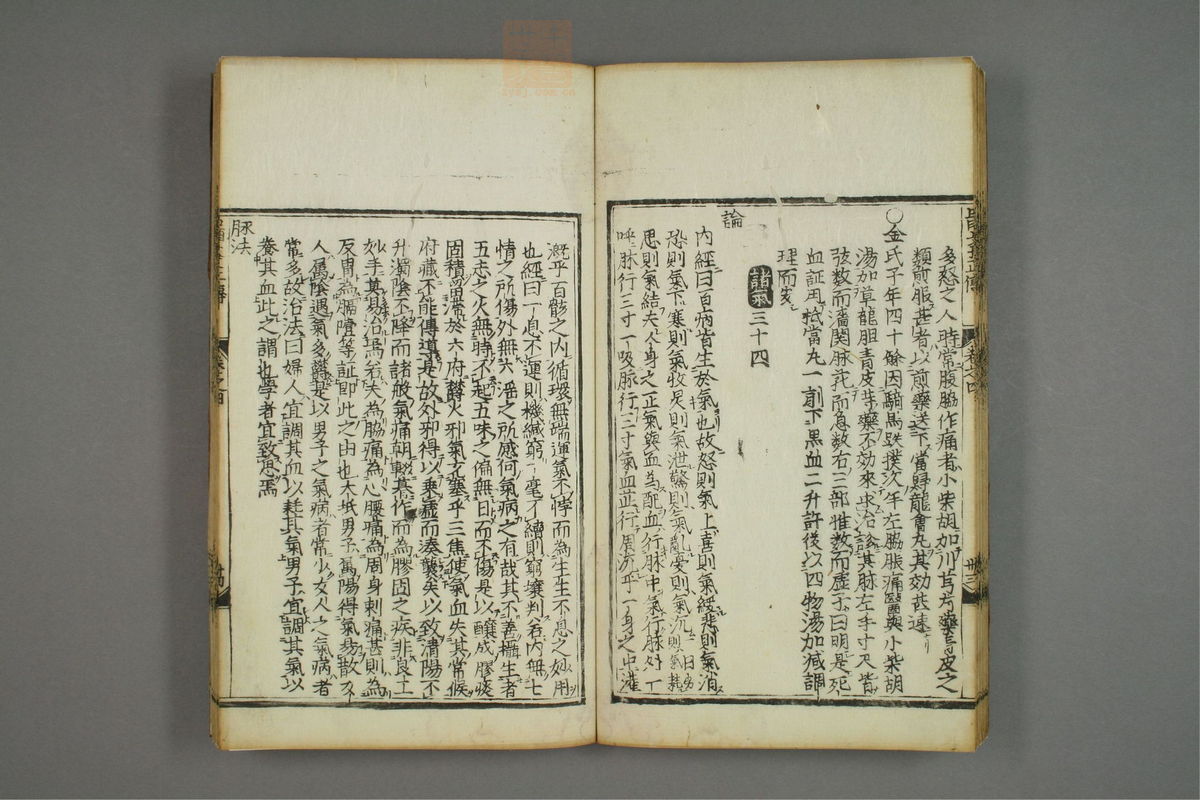 多怒之人時常腹脇作痛者小柴胡加川芎芍藥青皮之
類煎服甚者以煎藥送下當歸龍會丸其効甚速
○金氏子年四十餘因騎馬跌撲次年左脇脹痛醫與小柴胡
湯加草龍膽青皮等藥不効來求治診其脉左手寸尺皆
弦数而濇関脉芤而急数右三部惟数而虚予曰明是死
血証用抵當丸一劑下黒血二升許後以四物湯加減調
理而安
諸氣三十四
論
内經曰百病皆生於氣也故怒則氣上喜則氣緩悲則氣消
恐則氣下寒則氣收炅則氣泄驚則氣亂憂則氣沉勞則氣耗
思則氣結夫人身之正氣與血為配血行脉中氣行脉外一
呼脉行三寸一吸脉行三寸氣血並行周流乎一身之中灌
溉乎百骸之内循環無端運氣不悖而為生生不息之妙用
也經曰一息不運則機緘窮一毫不續則窮壤判若内無七
情之所傷外無六滛之所感何氣病之有哉其不善攝生者
五志之火無時不起五味之偏無日而不傷是以釀成膠痰
固積留滞於六府欝火邪氣充塞乎三焦使氣血失其常候
府藏不能傳導是故外邪得以乗虚而湊襲矣以致清陽不
升濁陰不降而諸般氣痛朝輟暮作而為膠固之疾非良工
妙手莫易治焉若夫為脇痛為心腰痛為周身刺痛甚則為
反胃為膈噎等証即此之由也大抵男子属陽得氣易散女
人屬陰遇氣多欝是以男子之氣病者常少女人之氣病者
常多故治法曰婦人宜調其血以耗其氣男子宜調其氣以
養其血此之謂也學者宜致思焉
脉法
卷之四